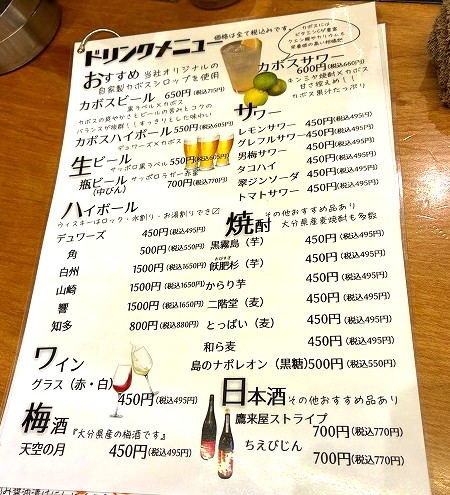 ドリンクメニュー
価格は全て税込みです。
おすすめ 当社オリジナルの
自家製カボスシロップを使用
カボスビール 650円(税込715円)
黒ラベル×カボス
カボスの爽やかさとビールの苦みとコクの
バランスが抜群!!すっきりとした味わい
カボスハイボール 550円(税込605円)
デュワーズ×カボス
生ビール 550円(税込605円)
サッポロ黒ラベル
瓶ビール 700円(税込770円)
(中びん) サッポロラガー赤星
ハイボール
ウィスキーはロック・水割り・お湯割りでき〼
デュワーズ 450円(税込495円)
角 500円(税込550円)
白州 1500円(税込1650円)
山崎 1500円(税込1650円)
響 1500円(税込1650円)
知多 800円(税込880円)
ワイン
グラス(赤・白) 450円(税込495円)
梅酒 『大分県産の梅酒です』
天空の月 450円(税込495円)
カボスには
ビタミンCが豊富
クエン酸やカリウムも
栄養価の高い柑橘肥
カボスサワー
600円(税込660円)
キンミヤ焼酎×カボス
甘さ控えめ!!
カボス果汁たっぷり
サワー
レモンサワー 450円(税込495円)
グレフルサワー 450円(税込495円)
男梅サワー 450円(税込495円)
タコハイ 450円(税込495円)
翠ジンソーダ 450円(税込495円)
トマトサワー 450円(税込495円)
焼酎 その他おすすめ品あり
大分県産麦焼酎も多数
黒霧島(芋) 450円(税込495円)
おびすぎ
飫肥杉(芋) 450円(税込495円)
からり芋 450円(税込495円)
二階堂(麦) 450円(税込495円)
とっぱい(麦) 450円(税込495円)
和ら麦 450円(税込495円)
島のナポレオン(黒糖) 500円(税込550円)
日本酒 その他おすすめ品あり
鷹来屋ストライプ
700円(税込770円)
ちえびじん
700円(税込770円)